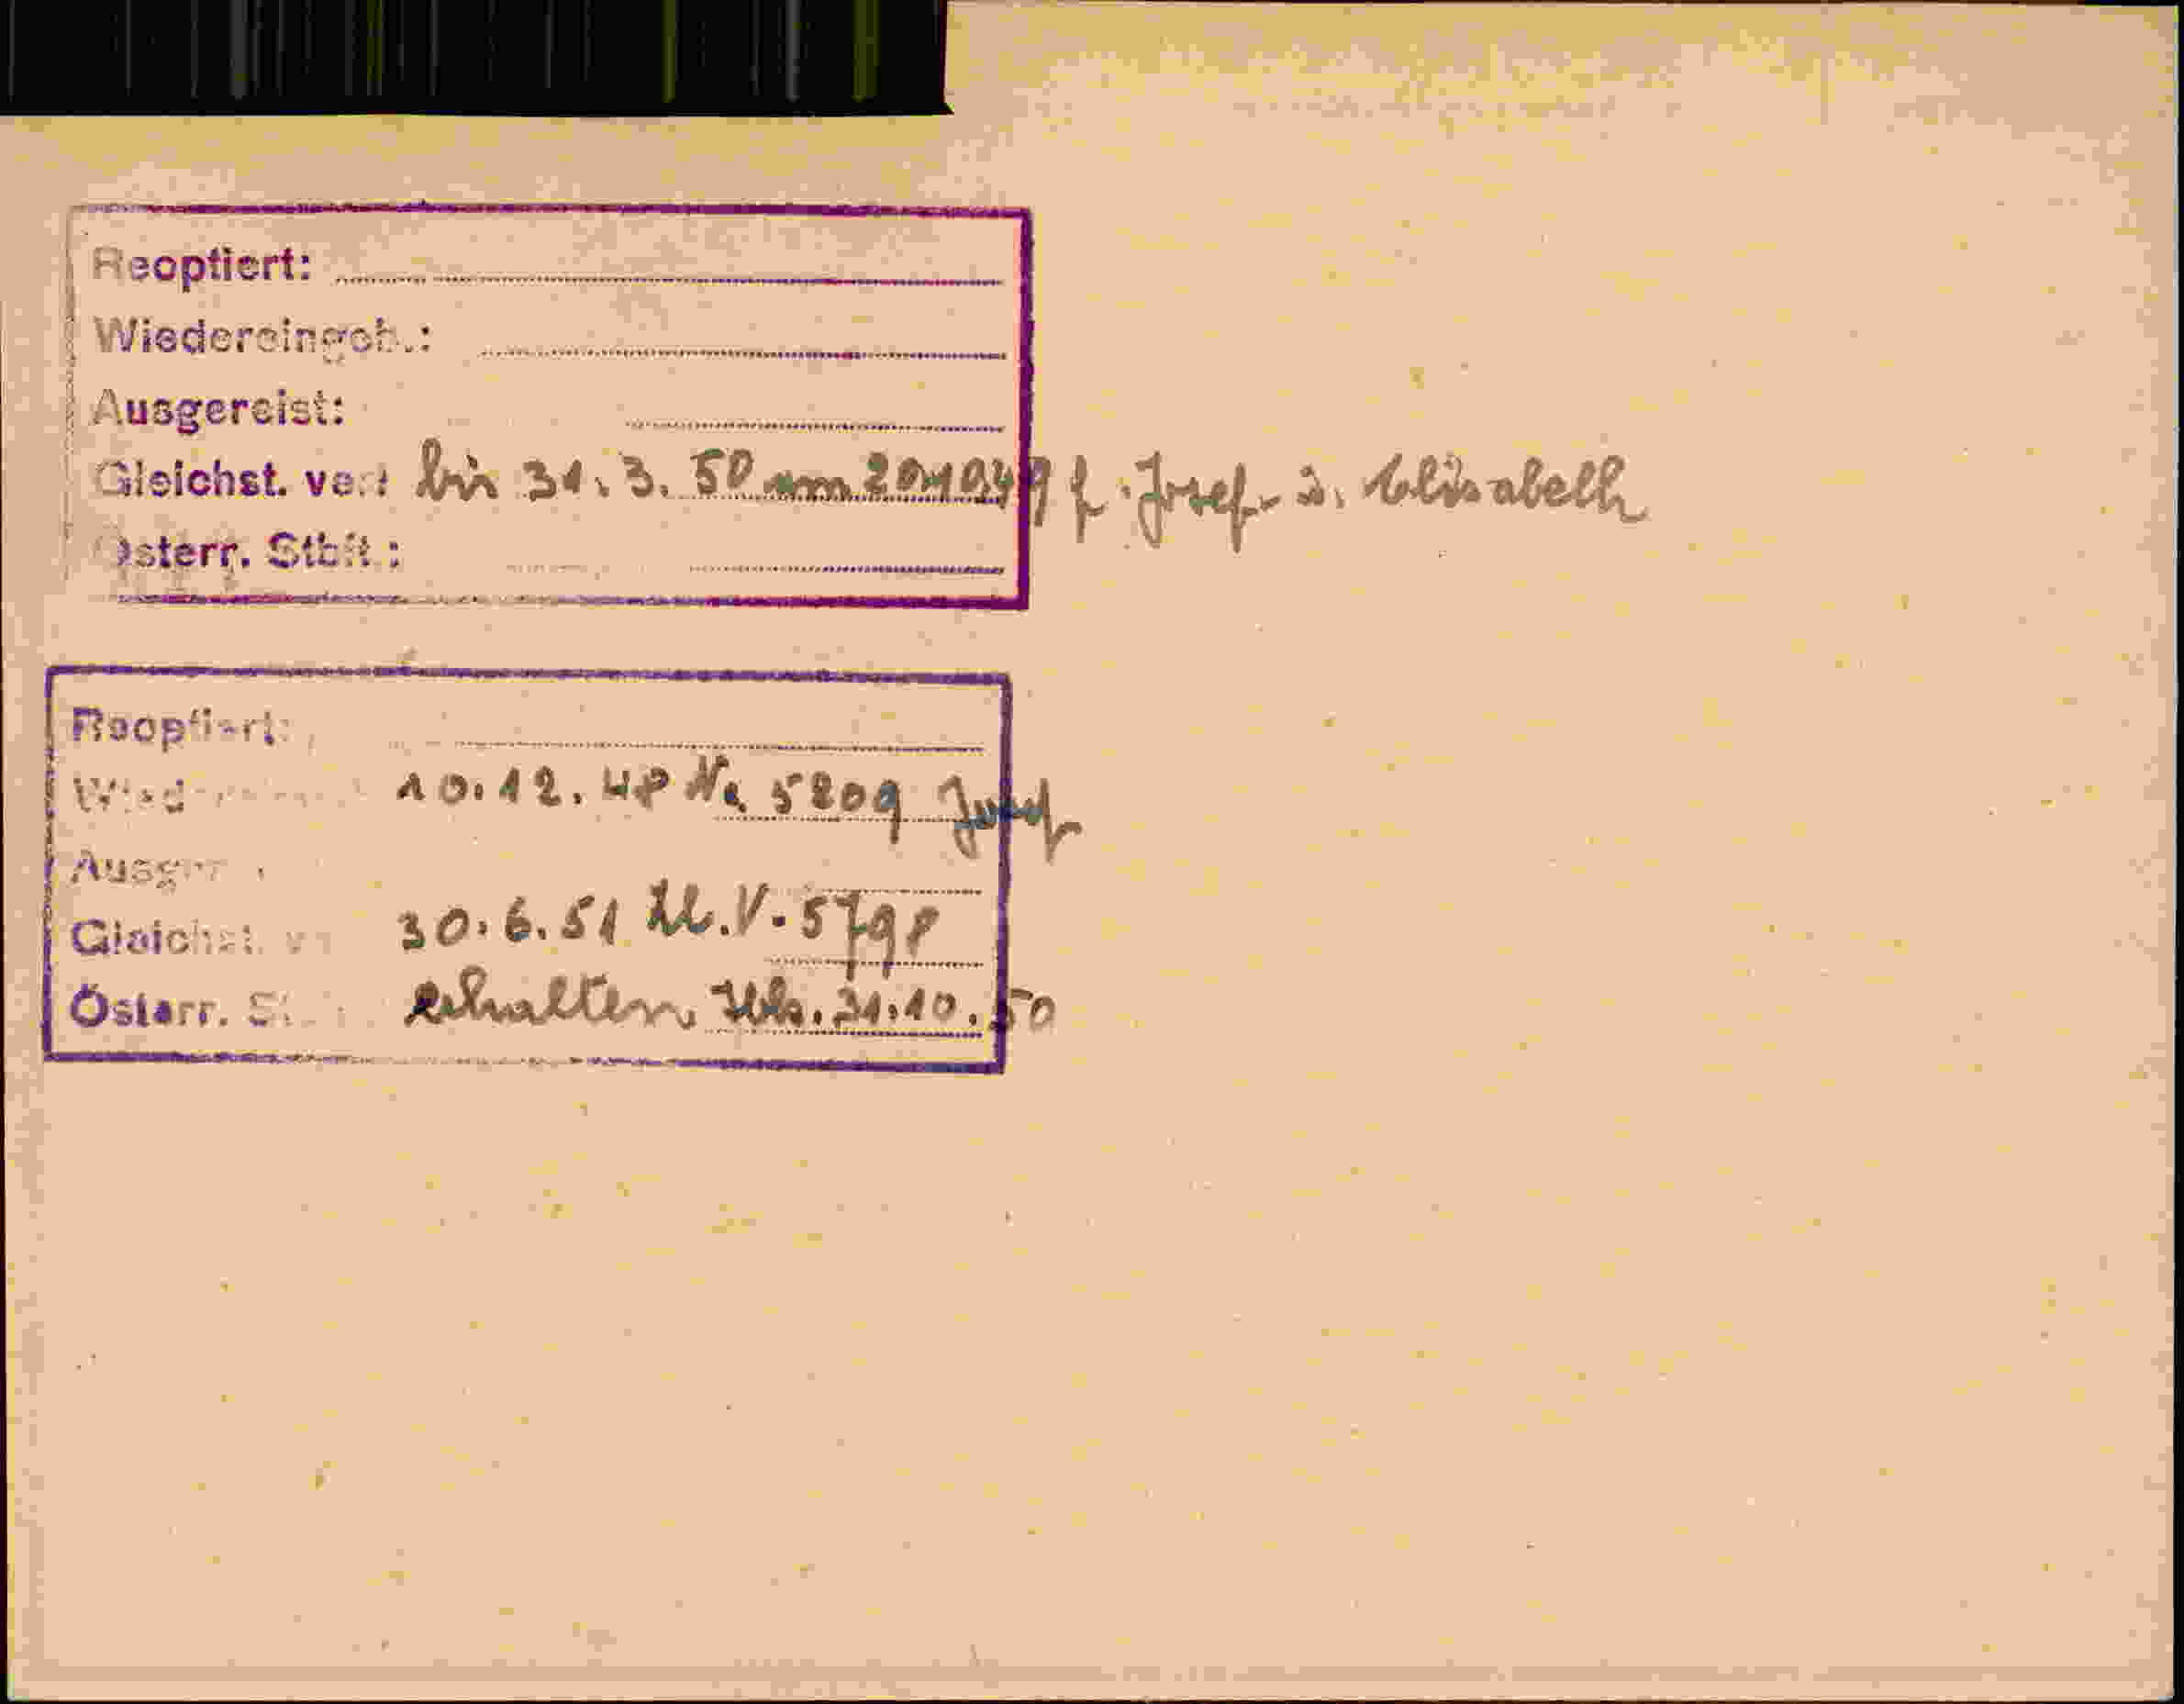 Reoptiert:
Wiedereingeb.:
Ausgereist:
Gleichst. verl bis 31.3.50 am 20.10.49 f. Josef u. Elisabeth
Österr. Stbft.:
Reoptiert:
10.12.48 No 5809 Josef
Gleichst. 30.6.51 Zl.V. 5798
Österr. St erhalten Urk. 31.10.50